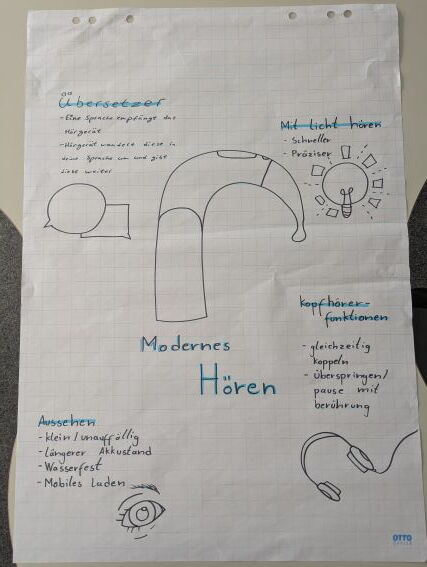 Übersetzer
- Eine Sprache empfängt das
Hörgerät
- Hörgerät wandelt diese in
deine Sprache um und gibt
diese weiter
Mit licht hören
- Schneller
- Präziser
Modernes
Hören
Kopfhörer-
funktionen
- gleichzeitig
koppeln
- Überspringen/
pause mit
berührung
Aussehen
- klein/unauffällig
- längerer Akkustand
- Wasserfest
- Mobiles Laden
OTTO